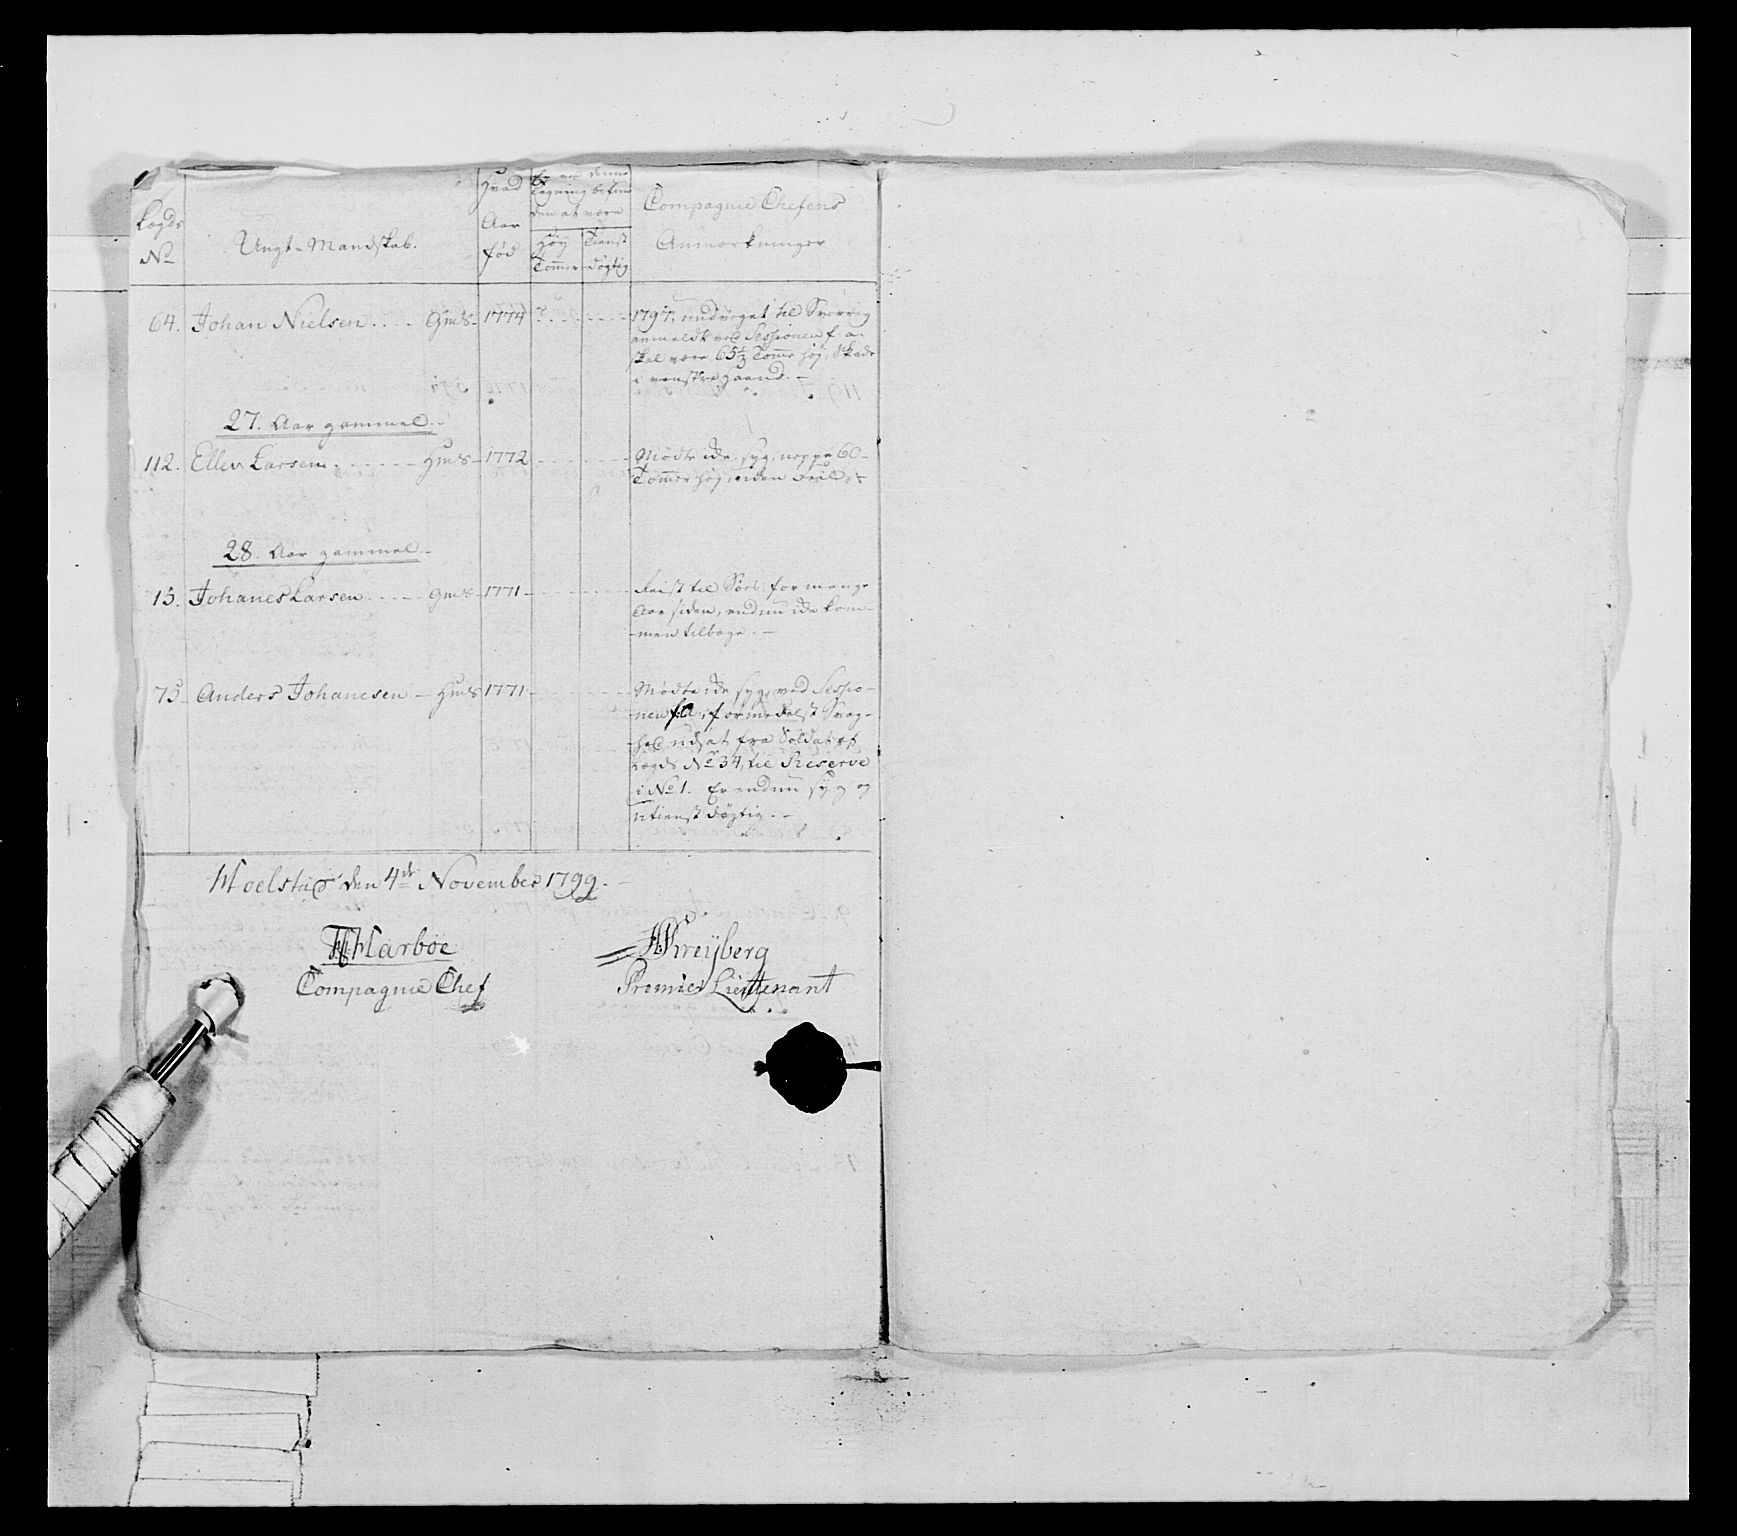 Lægds
No
Ungt-Mandskab.
Hvad
Aar
fød
Er ved denne
Lægning befun
den at være
Høy
Tommer
Tienst
dögtig
Compagnie Chefens
Anmærkninger
64. Johan Nielsen Gmds 1774 1797, undveget til Sverrig
anmeldt ved Sessionen f: a:
skal være 65½ Tomme høj, Skade
i venstre Haand.
27. Aar gammel.
112. Ellev Larsen Hmds 1772 Mødte icke, syg, neppe 60
Tommer høj, uden
28. Aar gammel
15. Johanes Larsen Gmds 1771 Reist til Søes for mange
Aar siden, endnu icke kom-
men tilbage.
75 Anders Johanesen Hmds 1771 Mødte icke syg, ved Sessio-
nen f:A: formedelst Svag-
hed udsat fra Soldat af
Lægds No 34, til Reserve
i No 1. Er endnu syg og
utienstdögtig.
Moelstad den 4de November 1799.
Marboe
Compagnie Chef
Kreÿberg
Premier Lieutenant